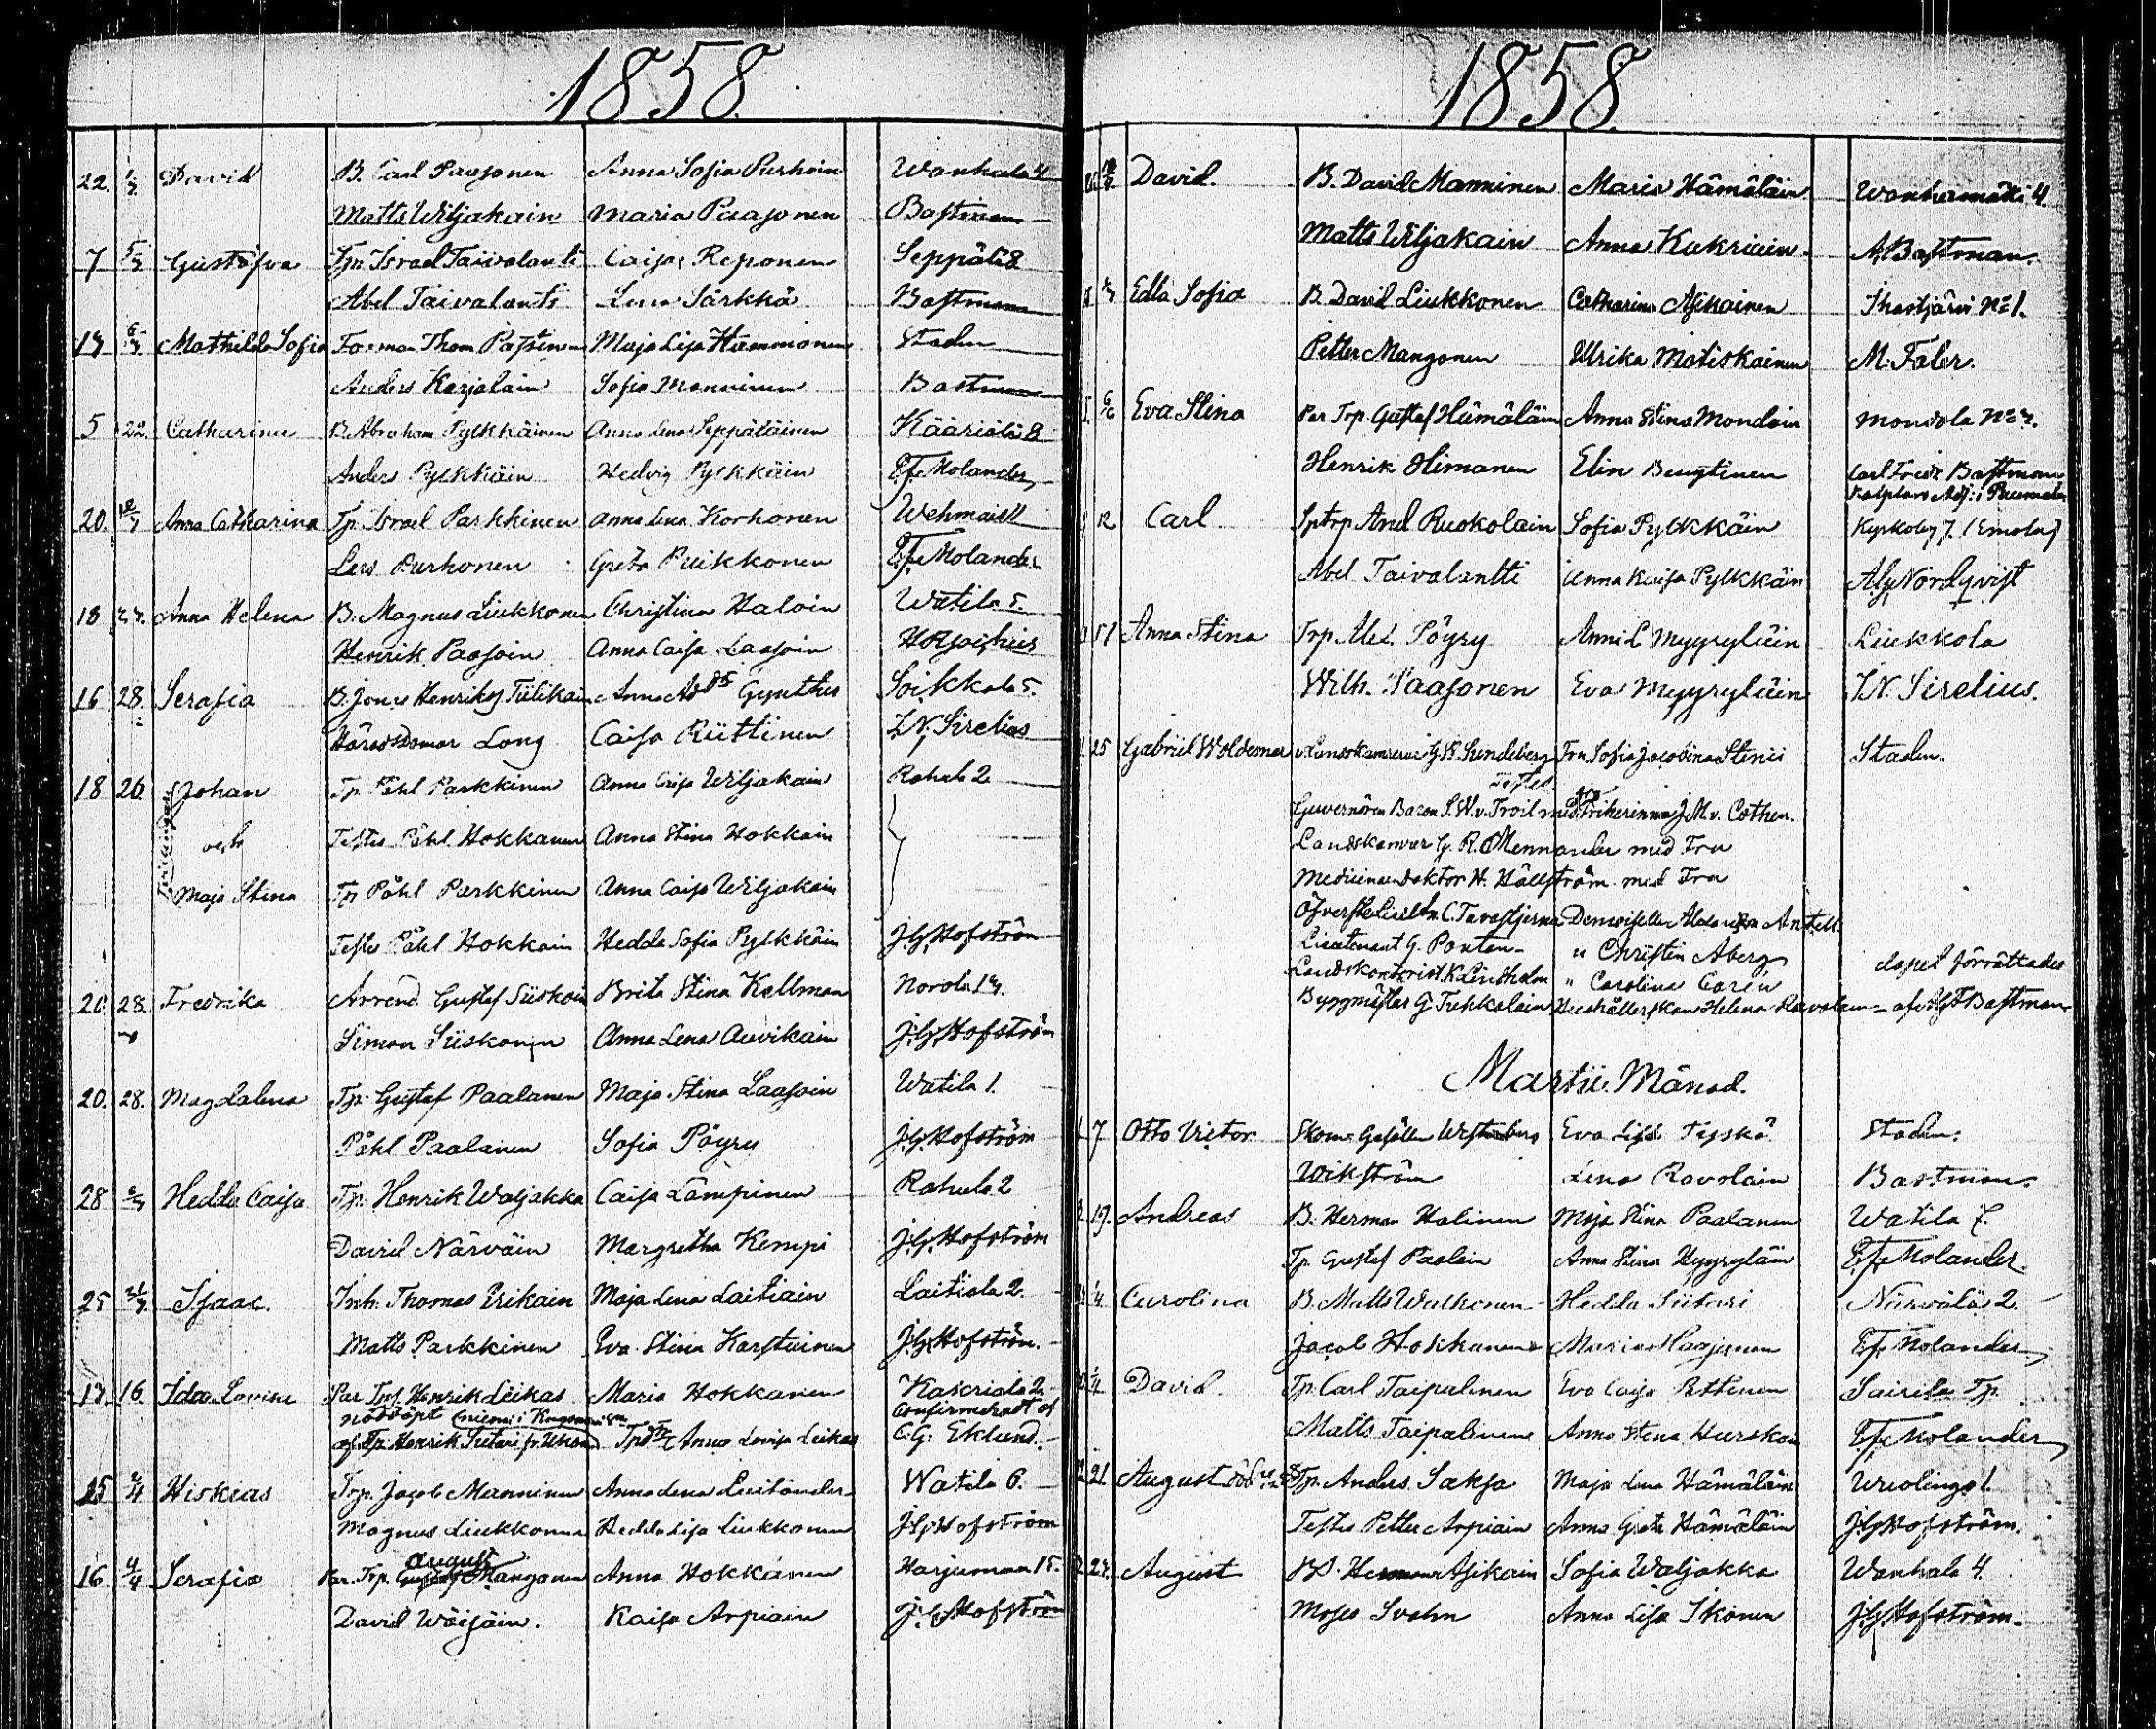 1858.
22. 1/3 David B. Carl Paasonen Anna Sofia Purhoin Wanhala 4
Matts Wiljakain Maria Paasonen Bastman
7 5/3 Gustafva Tp. Israel Taivalanti Caisa Reponen Seppälä 8
Abel Taivalanti Lena Särkkä Bastman
6/3 Mathilda Sofia Thom Maja Lisa Staden
Anders Karjalain Sofia Manninen Bastman
5 22. Catharina B. Abraham Pylkkäinen Anna Lena Seppäläinen Kääriälä 8
Anders Pylkkäin Hedvig Pylkkäin E. f. Molander
20. Anna Catharina Tp. Israel Parkkinen Anna Lena Korhonen
Lars Purhonen Greta Puikkonen E. f. Molander
18 Anna Helena B. Magnus Liukkonen Christina Haloin Watila 5.
Henrik Paasoin Anna Caisa Laasoin
16 28. Serafia B. Jonas Henrikss. Tiilikain Anna Soikkala 5.
Häradsdomar Long Caisa Riittinen Z. N. Sirelius
18 26. Johan Tp. Påhl Parkkinen Anna Caisa Wiljakain Rahula 2
och Testes Påhl Hokkanen Anna Stina Hokkain
Maja Stina Tp Påhl Parkkinen Anna Caisa Wiljakain
Testes Påhl Hokkain Hedda Sofia Pylkkäin J. G. Hofström
20. 28. Fredrika Arrend. Gustaf Siiskoin Brita Stina Kellman
Simon Siiskonen Anna Lena Auvikain J. G. Hofström
20. 28. Magdalena Tp. Gustaf Paalanen Maja Stina Laasoin Watila 1.
Påhl Paalanen Sofia Pöyry J. G. Hofström
28 Hedda Caisa Tp. Henrik Waljakka Caisa Lampinen Rahula 2
David Närväin Margretha Kempi J. G. Hofström
25 Isaac. Inh. Thomas Maja Lena Laitiain Laitiala 2.
Matts Parkkinen Eva Stina J. G. Hofström.
16. Ida Lovisa Par. Tp. Henrik Leikas Maria Hokkanen
nöddöpt Confirmeradt af
af Tp. Henrik Anna Lovisa Leikas C. G. Eklund.
25 Hiskias Trp. Jacob Manninen Anna Lena Watila 6.
Magnus Liukkonen Hedda Lisa Liukkonen J. G. Hofström
August
16 4/4 Serafia Par. Trp. Gustaf Mangonen Anna Hokkanen Harjumaa 15.
David Wäisäin. Kaisa Arpiain J. G. Hofström
1858.
David. B. David Manninen Maria Hämäläin Wanhamäki 4
Matts Wiljakain Anna Kukriain A. Bastman.
Edla Sofia B. David Liukkonen Catharina Asikainen Ihastjärvi No 1.
Petter Mangonen Ulrika Matiskainen M. Faler.
Eva Stina Par Trp. Gustaf Hämäläin Anna Stina Mondain
Henrik Himanen Elin Bengtinen Carl Fredr. Bastman
12 Carl And Ruokolain Sofia Pylkkäin Kyrkoby 7. (Emola)
Abel Taivalantti Anna Kaisa Pylkkäin Nordqvist
Anna Stina Trp. Alex. Pöyry Anni L Myyryläin Liukkola
Wilh. Paasonen Eva Myyryläin Z. N. Sirelius.
25 Gabriel Woldemar G. W. Sundeberg Fru Sofia Jacobina Stenii Staden.
Testes
Guvernören Baron S. W. v. Troil med Friherinna J. M. v. Cothen.
Landskamrer G. R. Mennander med Fru
Medicine Doktor H. Hällström med Fru
C. Tavastjerna Demoiselle Antell.
Lieutenant G. Pontan " Christin Åberg
Landskontorist K. Lindholm " Carolina Corén dopet förrättades
Byggmästar G. Tukkalain Hushållerskan Helena Ravolain af Bastman
Martii. Månad.
7 Otto Victor Skom. Gesällen Westerberg Eva Lisa Tyskä Staden.
Wikström Lena Ravolain Bastman.
19. Andreas B. Herman Halinen Maja Stina Paalanen Watila 7.
Tp. Gustaf Paalain Anna Stina Hyyryläin E. f. Molander.
Carolina B. Matts Walkonen Hedda Siitari Närvälä 2.
Jacob Hokkanen Maria Haajanen E. f. Molander
David. Tp. Carl Taipalinen Eva Caisa Pettinen Sairila Tp.
Matts Taipalinen Anna Stina Hurskain E. f. Molander
21. August Tp. Anders Saksa Maja Lena Hämäläin
Testes Petter Arpiain Anna Greta Hämäläin J. G. Hofström.
August Herman Asikain Sofia Waljakka Wanhala 4.
Moses Svahn Anna Lisa Ikonen J. G. Hofström.